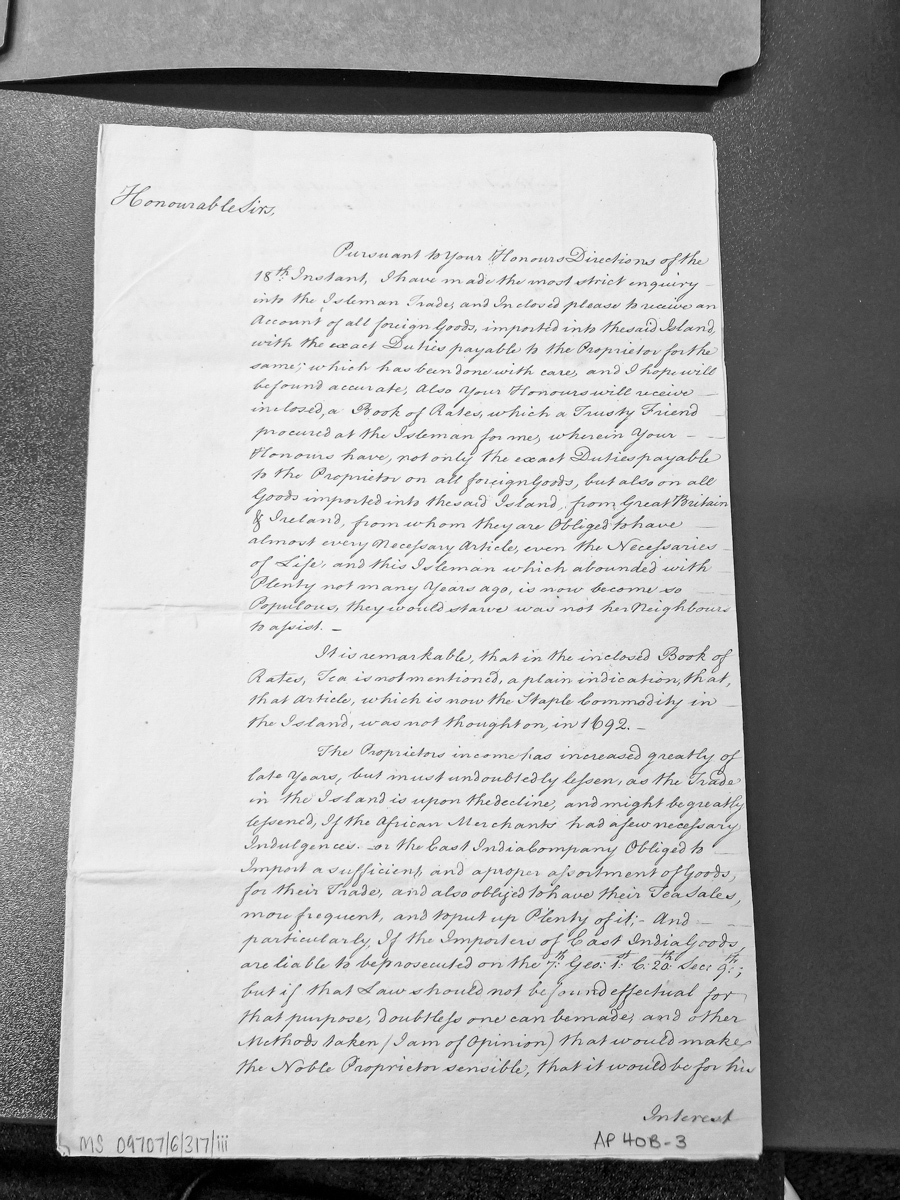 Honourable Sirs,
Pursuant to Your Honours Directions of the
18th. Instant, I have made the most strict enquiry
into the Isleman Trade, and Inclosed please to receive an
Account of all foreign Goods, imported into the said Island,
with the exact Duties payable to the Proprietor for the
same; which has been done with care, and I hope will
be found accurate, Also Your Honours will receive
inclosed, a Book of Rates, which a Trusty Friend
procured at the Isleman for me, wherein Your
Honours have, not only the exact Duties payable
to the Proprietor on all foreign Goods, but also on all
Goods imported into the said Island, from Great Britain
& Ireland, from whom they are Obliged to have
almost every Necessary Article, even the Necessaries
of Life, and this Isleman which abounded with
Plenty not many Years ago, is now become so
Populous, they would starve was not her Neighbours
to assist. –
It is remarkable, that in the inclosed Book of
Rates, Tea is not mentioned, a plain indication, that,
that Article, which is now the Staple Commodity in
the Island, was not thought on, in 1692. –
The Proprietors income has increased greatly of
late Years, but must undoubtedly lessen, as the Trade
in the Island is upon the decline, and might be greatly
lessened, If the African Merchants had a few necessary
Indulgences – or the East India Company Obliged to
Import a sufficient, and a proper assortment of Goods,
for their Trade, and also obliged to have their Tea Sales,
more frequent, and to put up Plenty of it; – And
particularly, If the Importers of East India Goods,
are liable to be prosecuted on the 7th. Geo: 1st. C: 20th. Sec: 9th.;
but if that Law should not be found effectual for
that purpose, doubtless one can be made, and other
Methods taken (I am of Opinion) that would make
the Noble Proprietor sensible, that it would be for his
Interest
MS 09707/6/317/iii
AP 40B-3